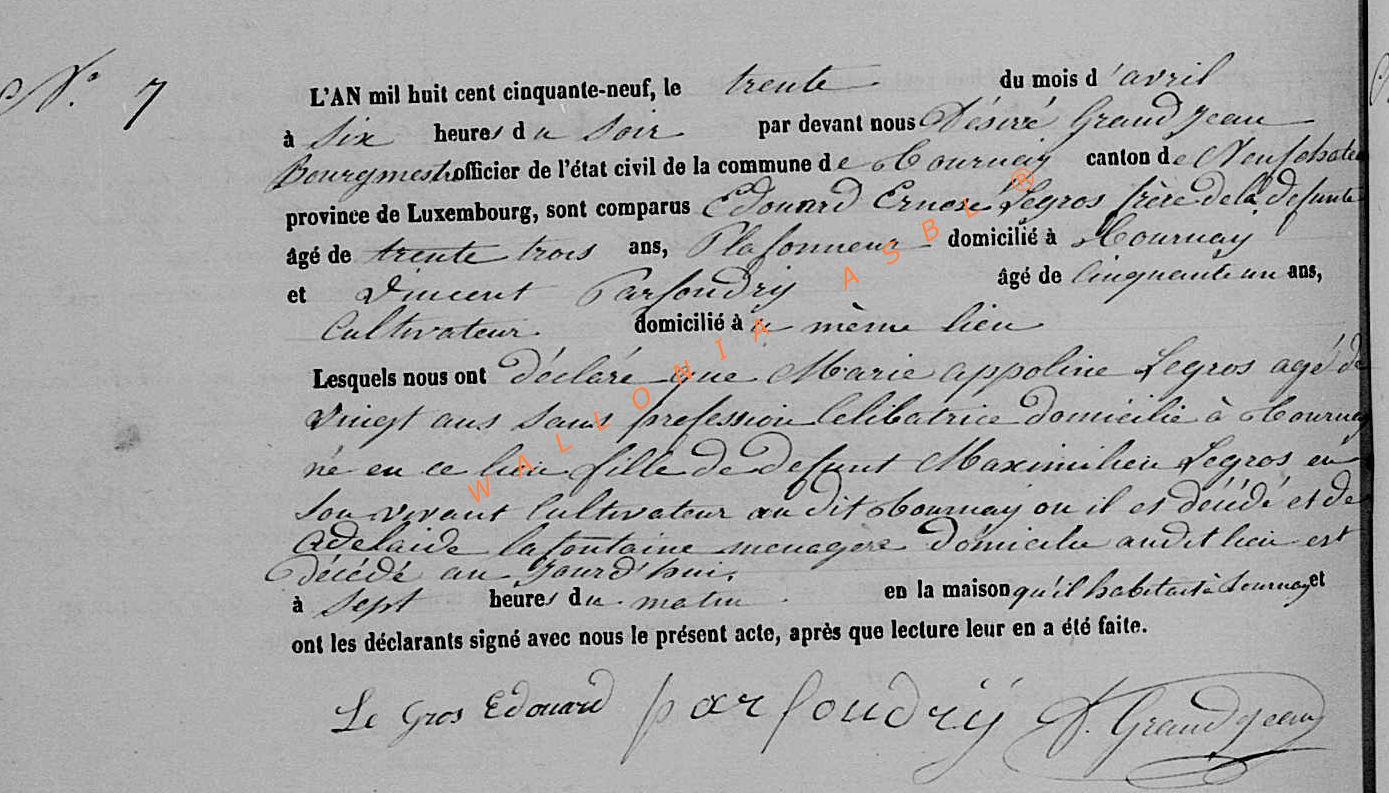 N° 7
L'AN mil huit cent cinquante-neuf, le trente du mois d'avril
à Six heures du Soir par devant nous Désiré Grandjean
Bourgmestre officier de l'état civil de la commune de Tournay canton de Neufchateau
province de Luxembourg, sont comparus Edouard Ernest Legros frère de la defunte
âgé de trente trois ans, Plafonneur domicilié à Tournay
et Vincent Parfondrÿ âgé de Cinquante un ans,
Cultivateur domicilié à u même lieu
Lesquels nous ont déclaré que Marie appoline Legros agé de
vingt ans sans profession Celibatrice domicilié à Tournay
né en ce lieu fille de defunt Maximilien Legros en
son vivant Cultivateur au dit Tournay ou il es décédé et de
Adelaide lafontaine menagere domicilié audit lieu est
décédé au jourd'hui,
à Sept heures du matin en la maison qu'il habitait à Tournay et
ont les déclarants signé avec nous le présent acte, après que lecture leur en a été faite.
Le Gros Edouard parfondrÿ D. Grandjean
WALLONIA ASBL ®